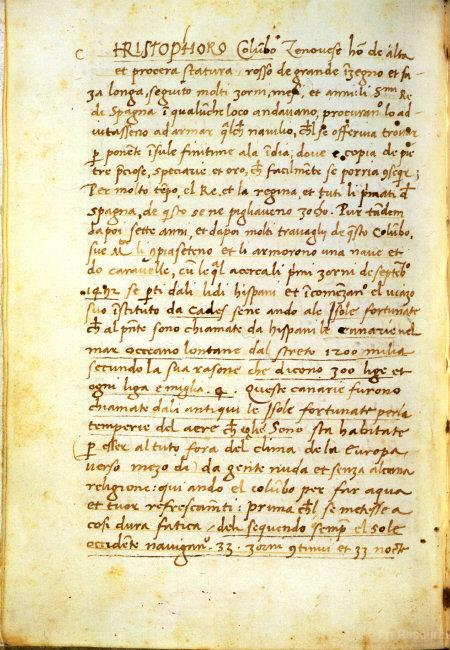 C HRISTOPHORO Colũbo Zenovese hõ de alta
et procera statura rosso de grande ĩzegno et fa-
za longa, seguito molti zorni, mesi, et anni: li Smi Re
di Spagna ĩ qualũche loco andavano, procurando lo ad-
iutasseno ad armar qlch navilio, chl se offeriva trovar
p ponente ĩsule finitime ala ĩdia, dove e copia de pie
tre p̃ciose, speciarie et oro, ch̃ facilmẽte se porria 9seqr:
Per molto tẽpo, el Re, et la regina, et tuti li p̃mati d̃
Spagna, de q̃sto se ne pigliaveno zoho. Pur tãdem
dapoi sette anni, et dapoi molti travagly de q̃sto Colũbo,
sue Alt. li 9piaseteno et li armorono una nave et
do caravelle, cũ le ql acerca li p̃mi zorni de septẽb.
1492 se p̃ti dali lidi hispani et ĩcomẽzan el viazo
suo ĩstituto da Cades sene ando ale Isole fortunate
ch̃ al p̃nte sono chiamate da hispani le Canarie nel
mar occeano lontane dal streto 1200 milia
secundo la sua rasone che dicono 300 lige et
ogni liga e miglia .4. Queste canarie furono
chiamate dali antiqui le Isole fortunate per la
temperie del aere ch̃ ĩ q̃lle Sono sta habitate
(p esser al tuto fora del clima de la Europa
verso mezo dã) da gente nuda et senza alcuna
religione: qui ando el colũbo per far aqua
et tuor refrescamti: prima chl se metesse a
cosi dura fatica: dele seguendo semp̃ el Sole
occidẽte navigan. 33. zorni 9tinui et 33 nocte